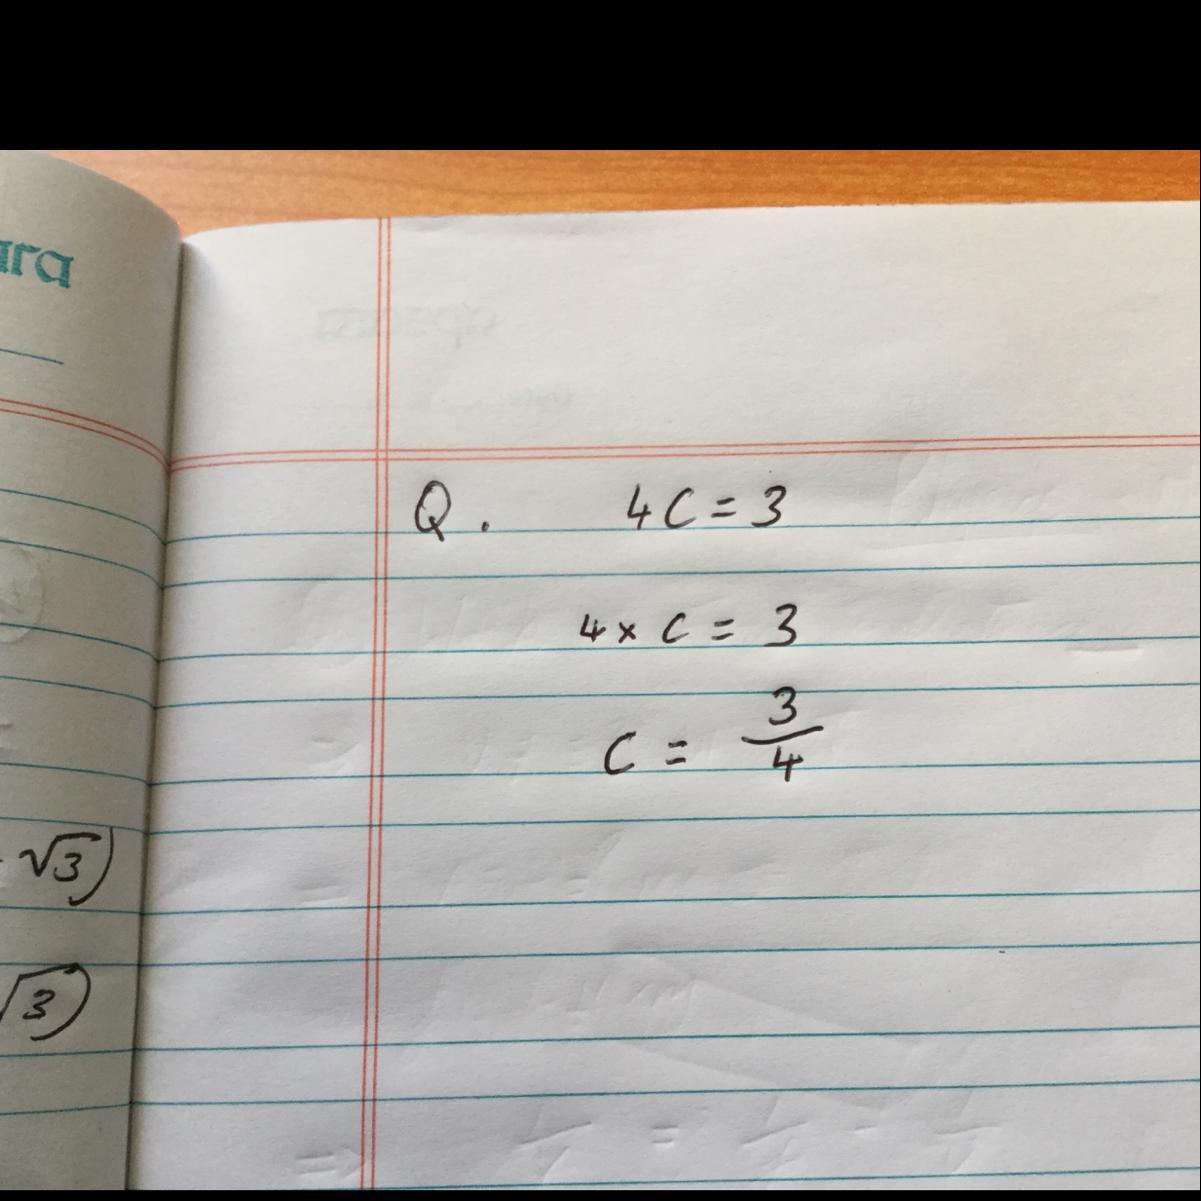 ara
Q. 4C = 3
4 × C = 3
C = 3/4
√3)
√3)